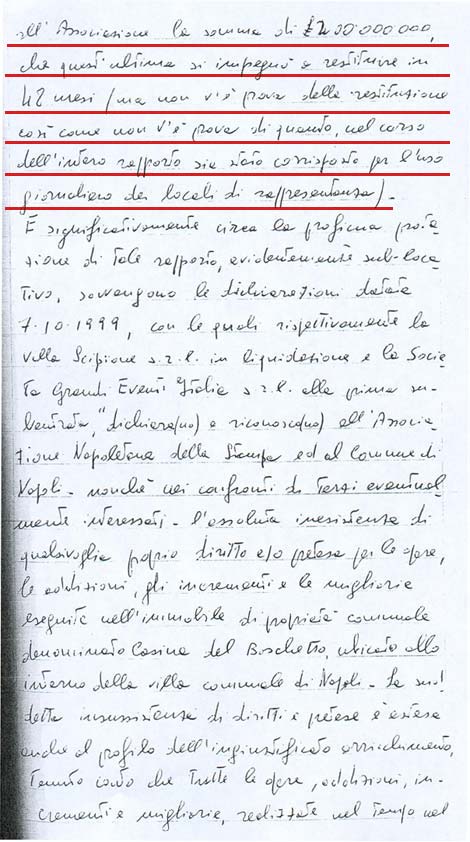 all'Associazione la somma di £200.000.000,
che quest'ultima si impegnò a restituire in
48 mesi (ma non v'è prova della restituzione
così come non v'è prova di quanto, nel corso
dell'intero rapporto sia stato corrisposto per l'uso
giornaliero dei locali di rappresentanza).
E significativamente circa la proficua
zione di tale rapporto, evidentemente sub-loca
tivo, sovvengono le dichiarazioni datate
7.10.1999, con le quali rispettivamente la
Villa Scipione s.r.l. in liquidazione e la Socie
tà Grandi Eventi Italia s.r.l. alla prima su-
bentrata, "dichiara(no) e riconosca(no) all'Associa
zione Napoletana della Stampa ed al Comune di
Napoli - nonché nei confronti di terzi eventual
mente interessati - l'assoluta inesistenza di
qualsivoglia proprio diritto e/o pretesa per le opere,
le addizioni, gli incrementi e le migliorie
eseguite nell'immobile di proprietà comunale
denominato Casina del Boschetto, ubicato allo
interno della villa comunale di Napoli - La sud
detta insussistenza di diritti e pretese è estesa
anche al profilo dell'ingiustificato arricchimento,
tenuto conto che tutte le opere, addizioni, in-
crementi e migliorie, realizzate nel tempo nel